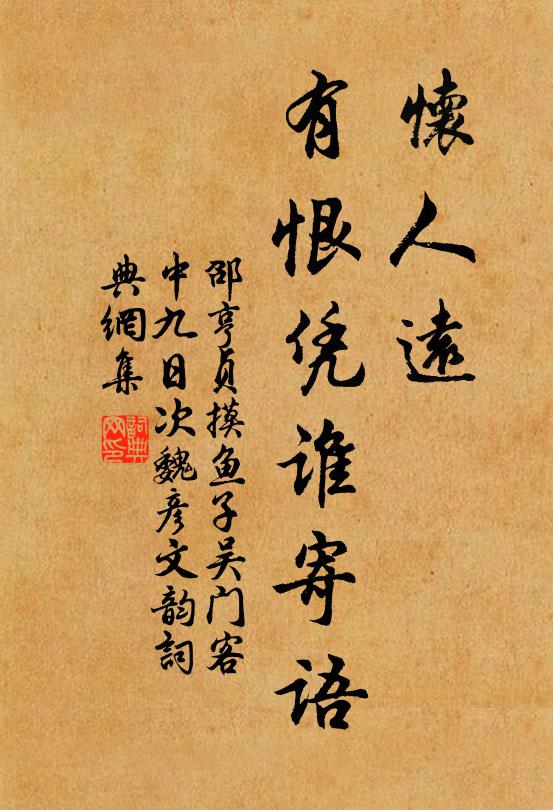 懷人遠
有恨凭谁寄语
邵亨貞摸鱼子吴门客
中九日次魏彦文韵詞
典網集
詞典
网印